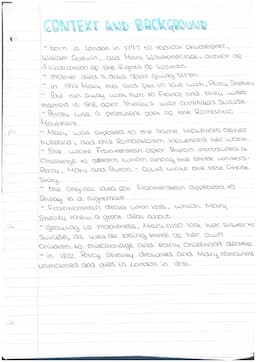 CONTEXT AND BACKGROUND
- born in London in 1797 to radical philosopher,
William Godwin, and Mary Wollstonecraft, author of
A Vindication of the Rights of Women.
- mother died 11 days after giving birth.
- in 1814 Mary met and fell in love with, Percy Shelley
- She ran away with him to France and they were
married in 1816 after Shelley's wife committed suicide.
- Percy was a prominent poet of the Romantic
Movement.
- Mary was exposed to the same influences as her
husband, and this Romanticism influenced her work.
- She wrote Frankenstein after Byron introduced a
challenge to whom among the three writers -
Percy, Mary and Byron - could write the best Ghost
Story.
- the original idea for Frankenstein appeared to
Shelley in a nightmare.
- Frankenstein deals with loss, which Mary
Shelley knew a great deal about.
- growing up motherless, Mary also lost her sister to
suicide, as well as losing three of her own
children to miscarriage and early childhood deaths.
- in 1822 Percy Shelley drowned and Mary remained
unmarried and died in London in 1851.